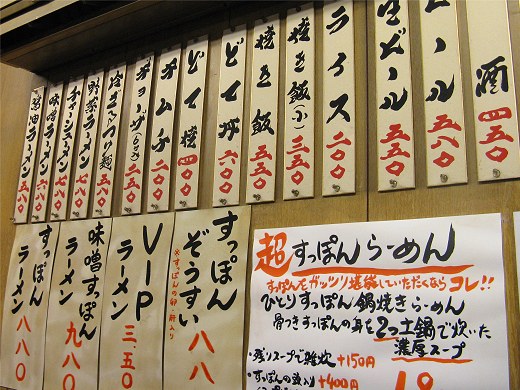 酒 四五〇
ビール 五五〇
生ビール 五五〇
ライス 二〇〇
焼き飯(小) 三五〇
焼き飯 五五〇
どて丼 六〇〇
どて焼 四〇〇
キムチ 二〇〇
ギョーザ(6コ) 二五〇
野菜ラーメン 七八〇
チャーシューメン 七八〇
味噌ラーメン 六八〇
醤油ラーメン 五八〇
すっぽん
ぞうすい 八八〇
VIP
ラーメン 三、五〇
味噌すっぽん
ラーメン 九八〇
すっぽん
ラーメン 八八〇
超すっぽんらーめん
すっぽんをガッツリ堪能していただくなら コレ!!
ひとりすっぽん鍋焼きらーめん
骨つきすっぽんの身を2つ土鍋で炊いた
濃厚スープ
・残りスープで雑炊 +150円